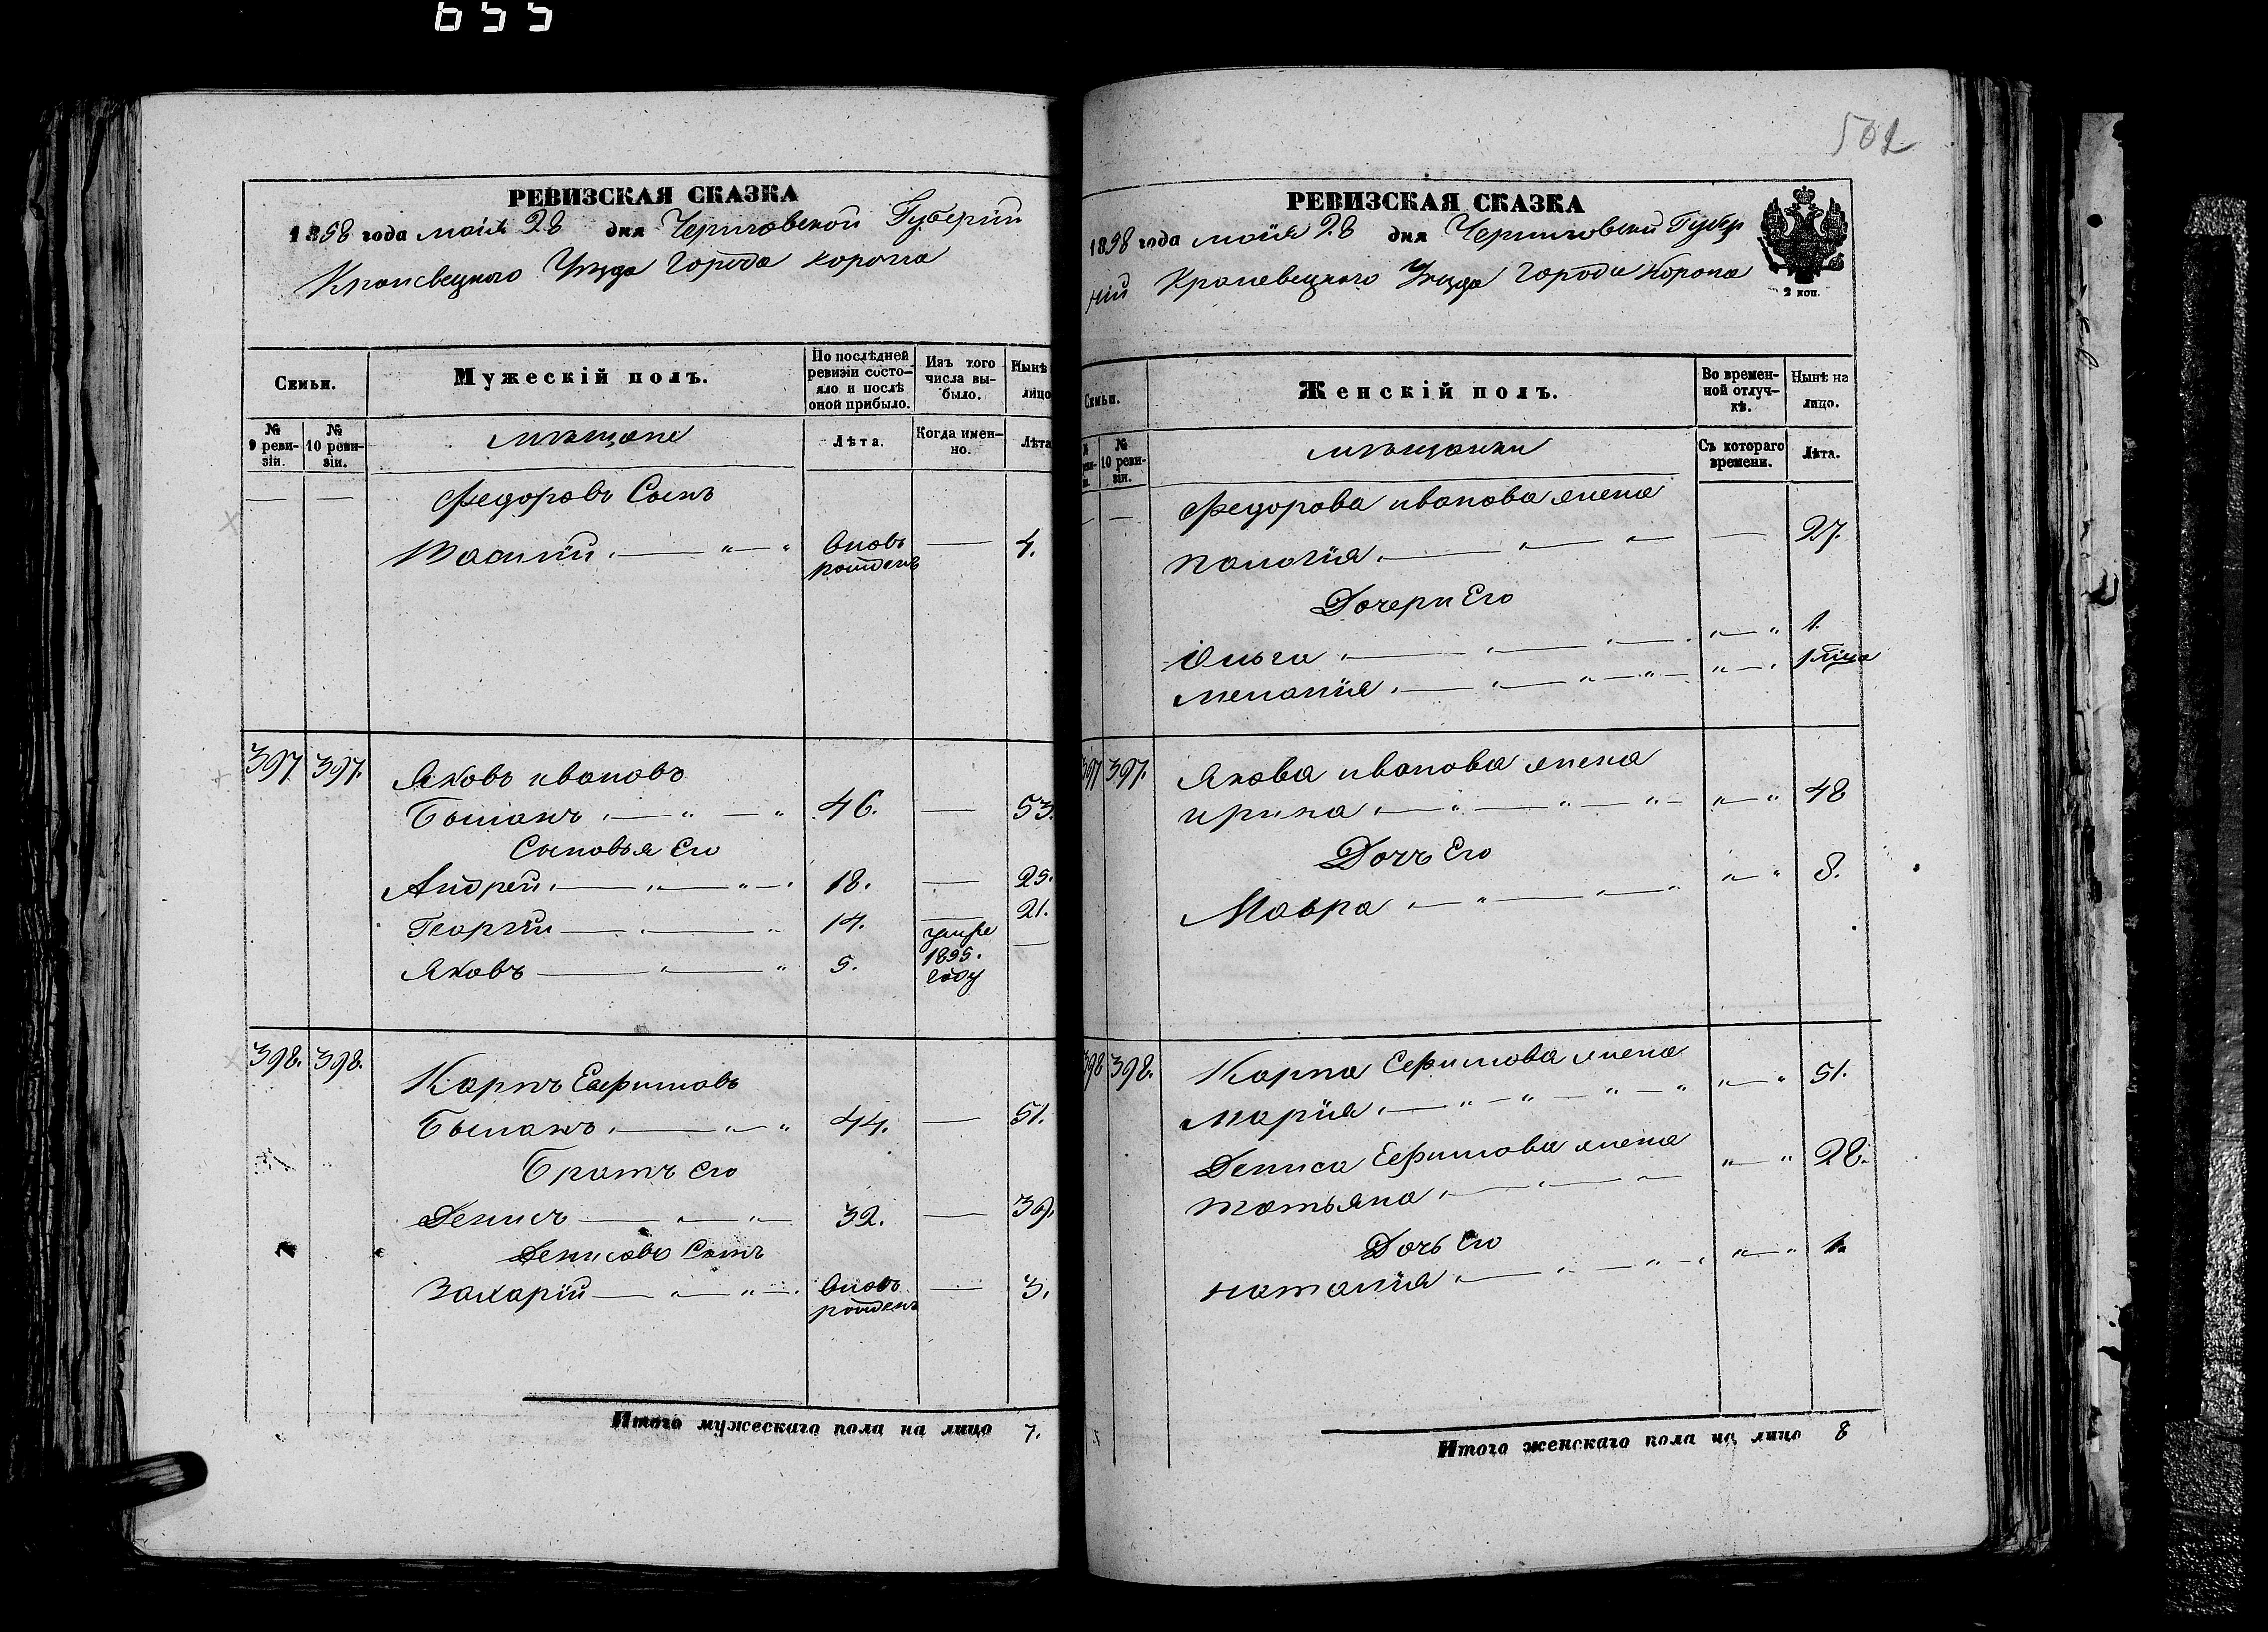 655
РЕВИЗСКАЯ СКАЗКА
1858 года маія 28 дня Черниговской Губерніи
Кролевецкого Уезда Города Коропа
Семьи.
Мужескій полъ.
По послѣдней ревизіи состо-яло и послѣ оной прибыло.
Изъ того числа вы-было.
Нынѣ лицо
№ 9 реви-зіи.
№ 10 реви-зіи.
мѣщане
Лѣта.
Когда имен-но.
Лѣта
Федоровъ Сынъ
Василій вновь рожденъ — 4.
397 397. Яковъ ивановъ
46. — 53.
Сыновья Его
Андрей 18. — 25.
Георгій 14. — 21.
Яковъ 5. умре 1855. году —
398. 398. Карпъ Ефимовъ
44. — 51.
Братъ его
Денисъ 32. — 39.
Денисовъ Сынъ
Захарій вновь рожденъ — 3.
Итого мужескаго пола на лицо 7.
502
РЕВИЗСКАЯ СКАЗКА
1858 года маія 28 дня Черниговской Губер
ніи Кролевецкого Уезда Города Коропа
2 коп.
Семьи.
Женскій полъ.
Во времен-ной отлуч-кѣ.
Нынѣ на лицо.
№ 10 реви-зіи.
мѣщанки
Съ котораго времени.
Лѣта.
Федорова иванова жена
Палагія — 27.
Дочери Его
Ольга 1.
Меланія
397 397. Якова иванова жена
ирина 48
Дочь Его
Мавра 8.
398 398. Карпа Ефимова жена
Марія 51.
Дениса Ефимова жена
татьяна 28.
Дочь Его
наталія 1.
Итого женскаго пола на лицо 8